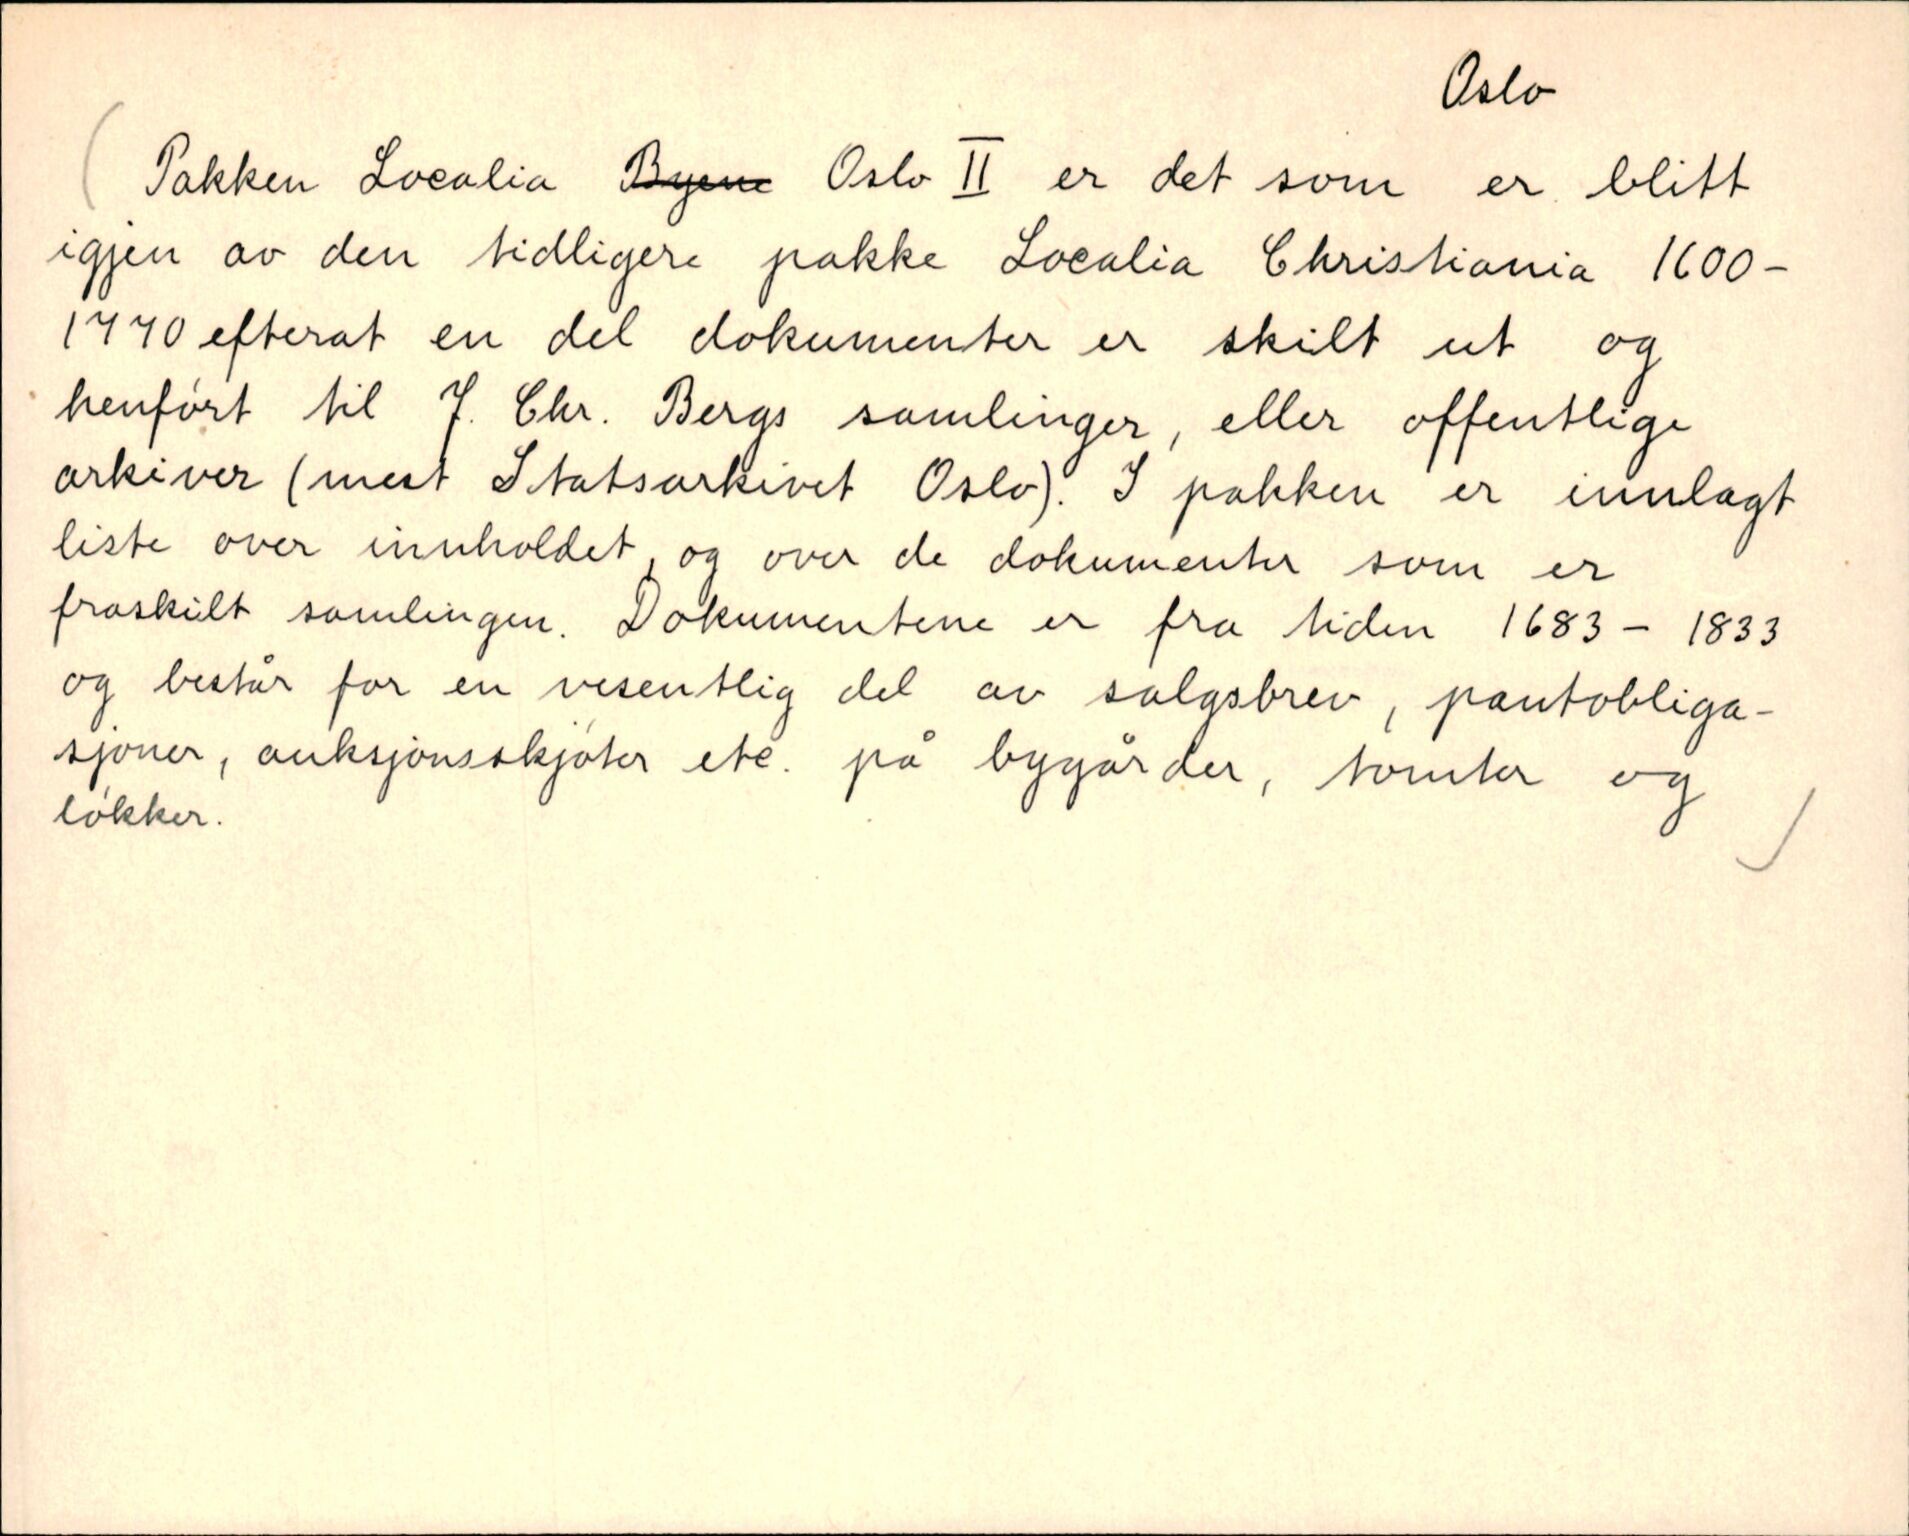 Oslo
( Pakken Localia ~~Byene~~ Oslo II er det som er blitt
igjen av den tidligere pakke Localia Christiania 1600 -
1770 efterat en del dokumenter er skilt ut og
henført til J. Chr. Bergs samlinger, eller offentlige
arkiver (mest Statsarkivet Oslo). I pakken er innlagt
liste over innholdet, og over de dokumenter som er
fraskilt samlingen. Dokumentene er fra tiden 1683 - 1833
og består for en vesentlig del av salgsbrev, pantobliga-
sjoner, auksjonsskjøter etc. på bygårder, tomter og
løkker. )